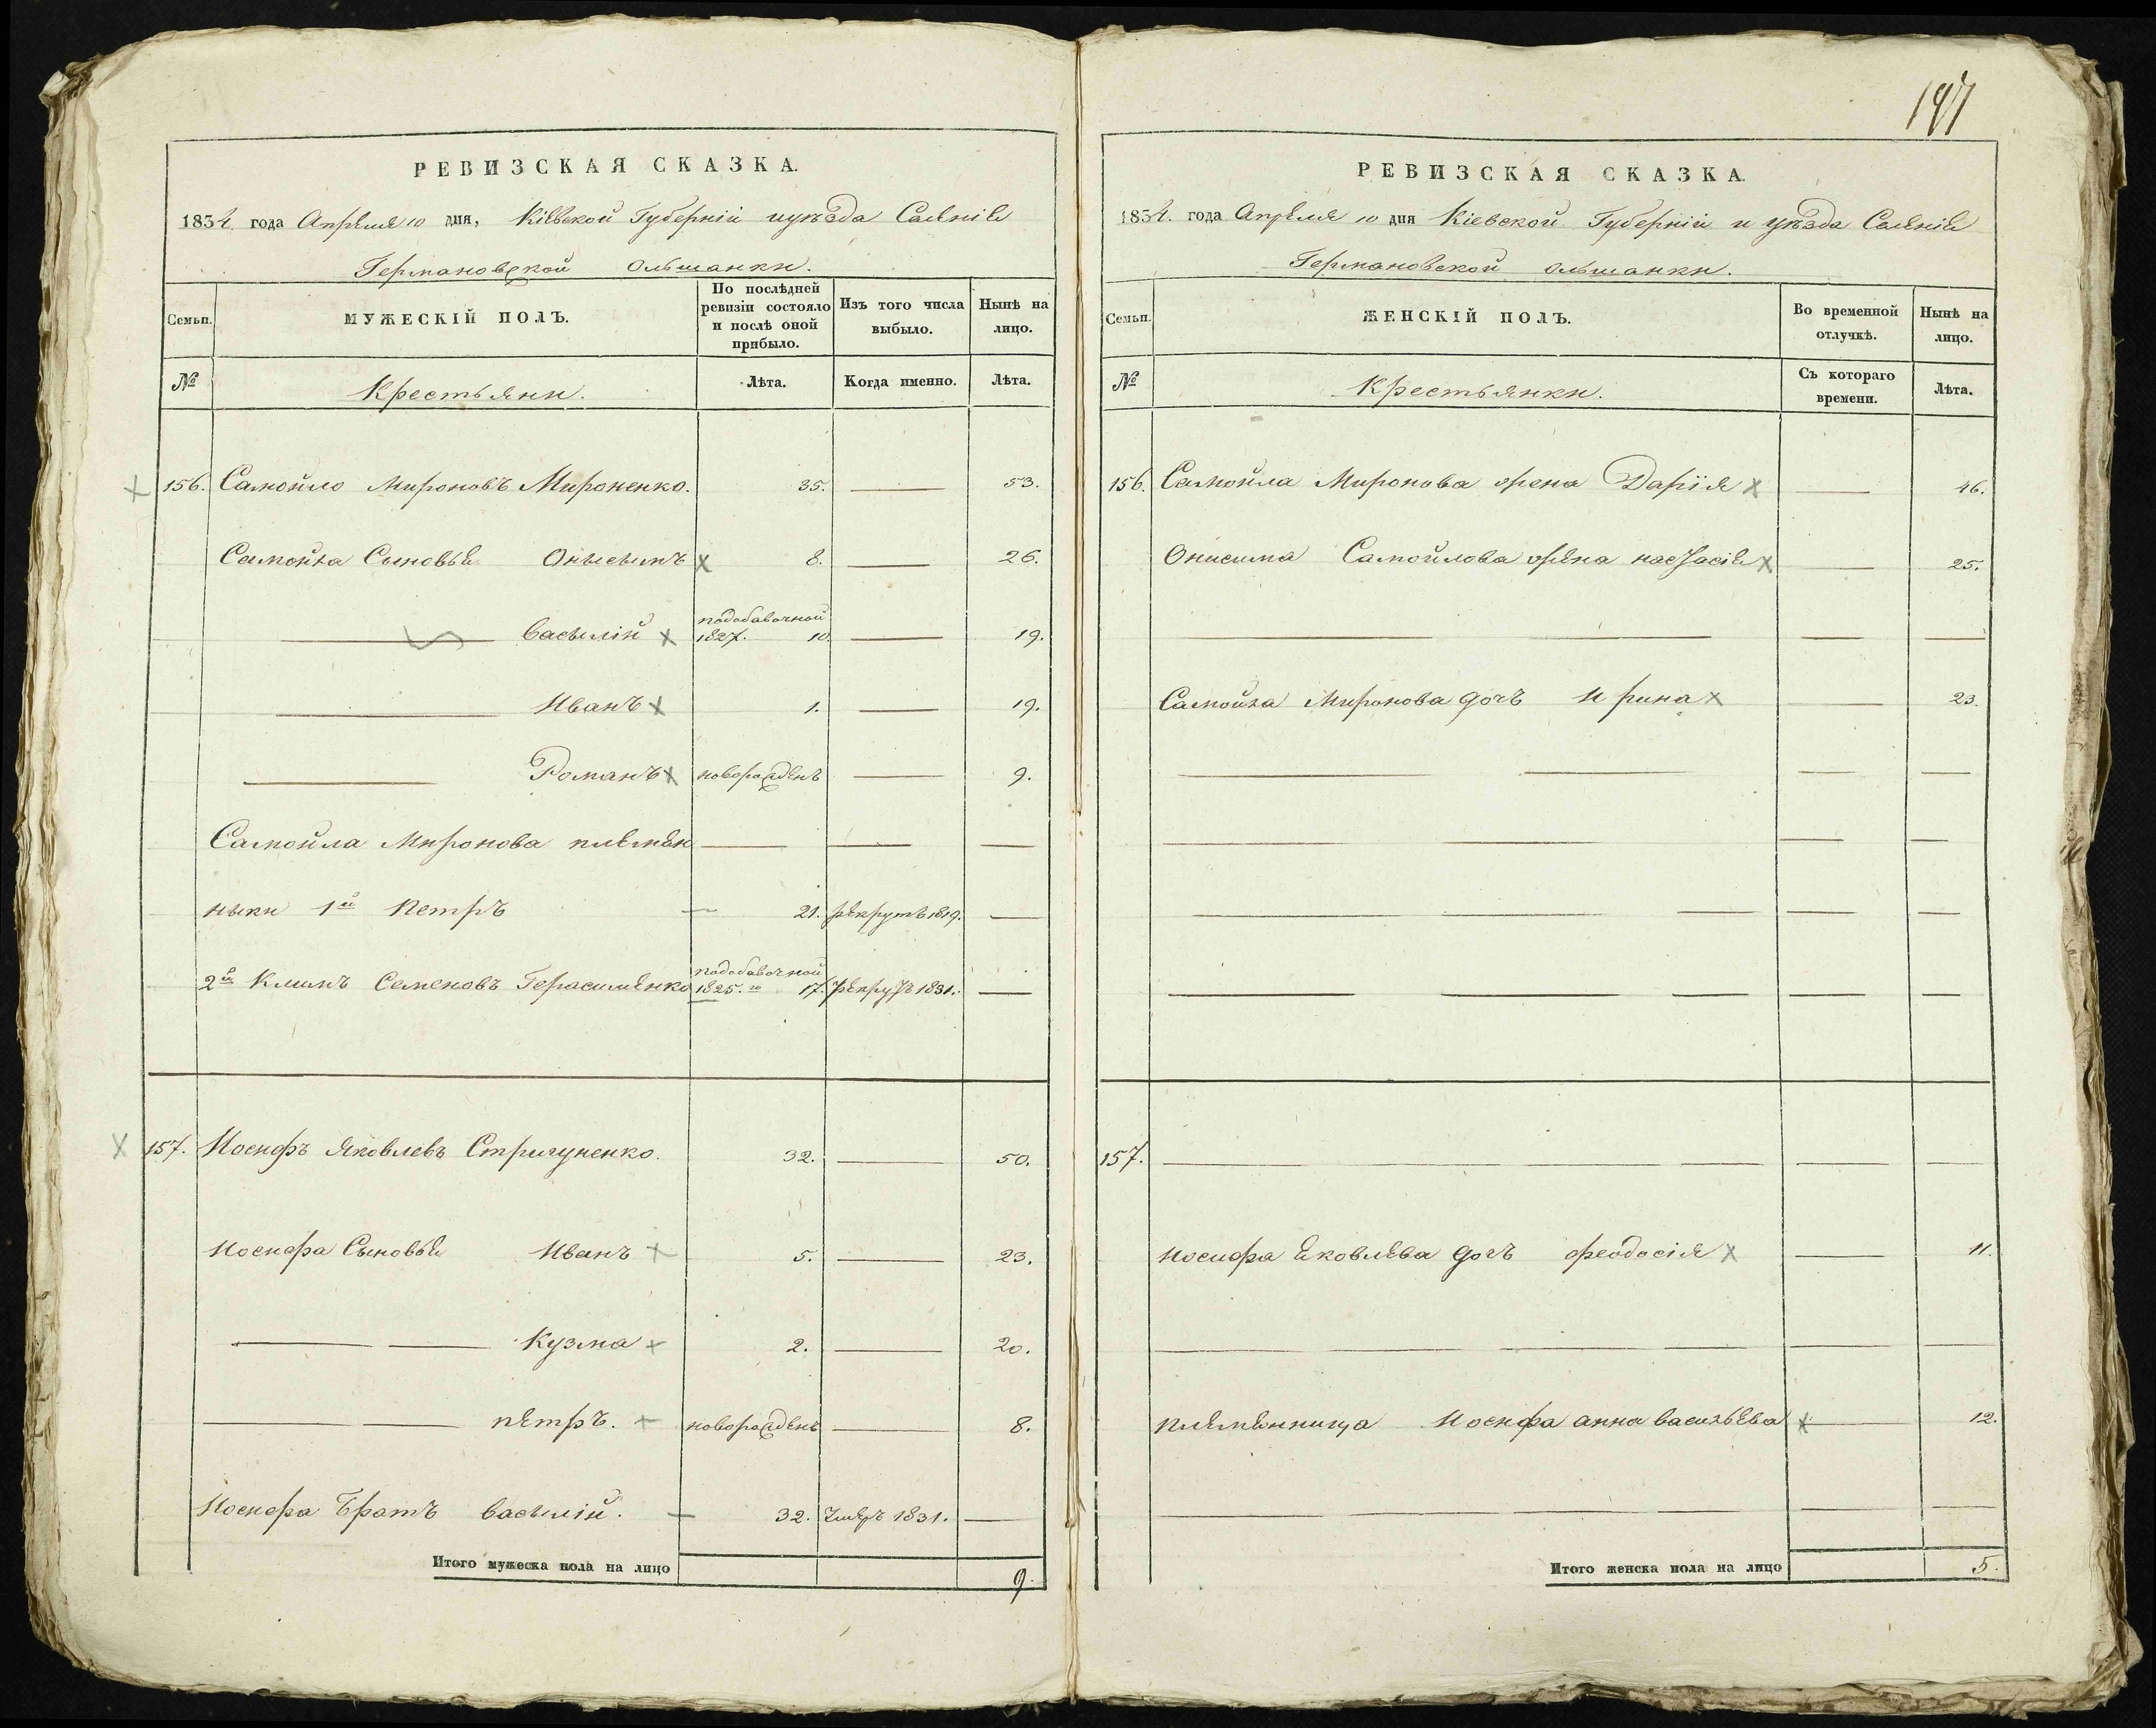 197
РЕВИЗСКАЯ СКАЗКА.
1834. года Апреля 10 дня, Кіевской Губерніи иуѣзда Селеніе
Германовской Ольшанки.
Семьи.
МУЖЕСКІЙ ПОЛЪ.
По послѣдней ревизіи состояло и послѣ оной прибыло.
Изъ того числа выбыло.
Нынѣ на лицо.
№
Крестьяни.
Лѣта.
Когда именно.
Лѣта.
156. Самойло Мироновъ Мироненко. 35. — 53.
Самойла Сыновье Онысымъ 8. — 26.
Васылій подобавочной 1827. 10 — 19.
Иванъ 1. — 19.
Романъ новорожденъ — 9.
Самойла Миронова племен — — —
ныки 1й Петръ — 21. рекрутъ 1819. —
2й Климъ Семеновъ Герасименко подобавочной 1825.го 17. рекрутъ 1831. —
157. Иосифъ Яковлевъ Стригуненко. 32. — 50.
Иосифа Сыновье Иванъ 5. — 23.
Кузма 2. — 20.
петръ. новорожденъ — 8.
Иосифа Братъ васылій. — 32. Умеръ 1831. —
Итого мужеска пола на лицо 9.
РЕВИЗСКАЯ СКАЗКА.
1834. года Апреля 10 дня Кіевской Губерніи и уѣзда Селеніе
Германовской Ольшанки.
Семьи.
ЖЕНСКІЙ ПОЛЪ.
Во временной отлучкѣ.
Нынѣ на лицо.
№
Крестьянки.
Съ котораго времени.
Лѣта.
156. Самойла Миронова жена Дарія — 46.
Онисима Самойлова жена настасіе — 25.
Самойла Миронова дочъ Ирина — 23.
157.
Иосифа Яковлева дочъ феодосія — 11.
племенница Иосифа анна васильева — 12.
Итого женска пола на лицо 5.